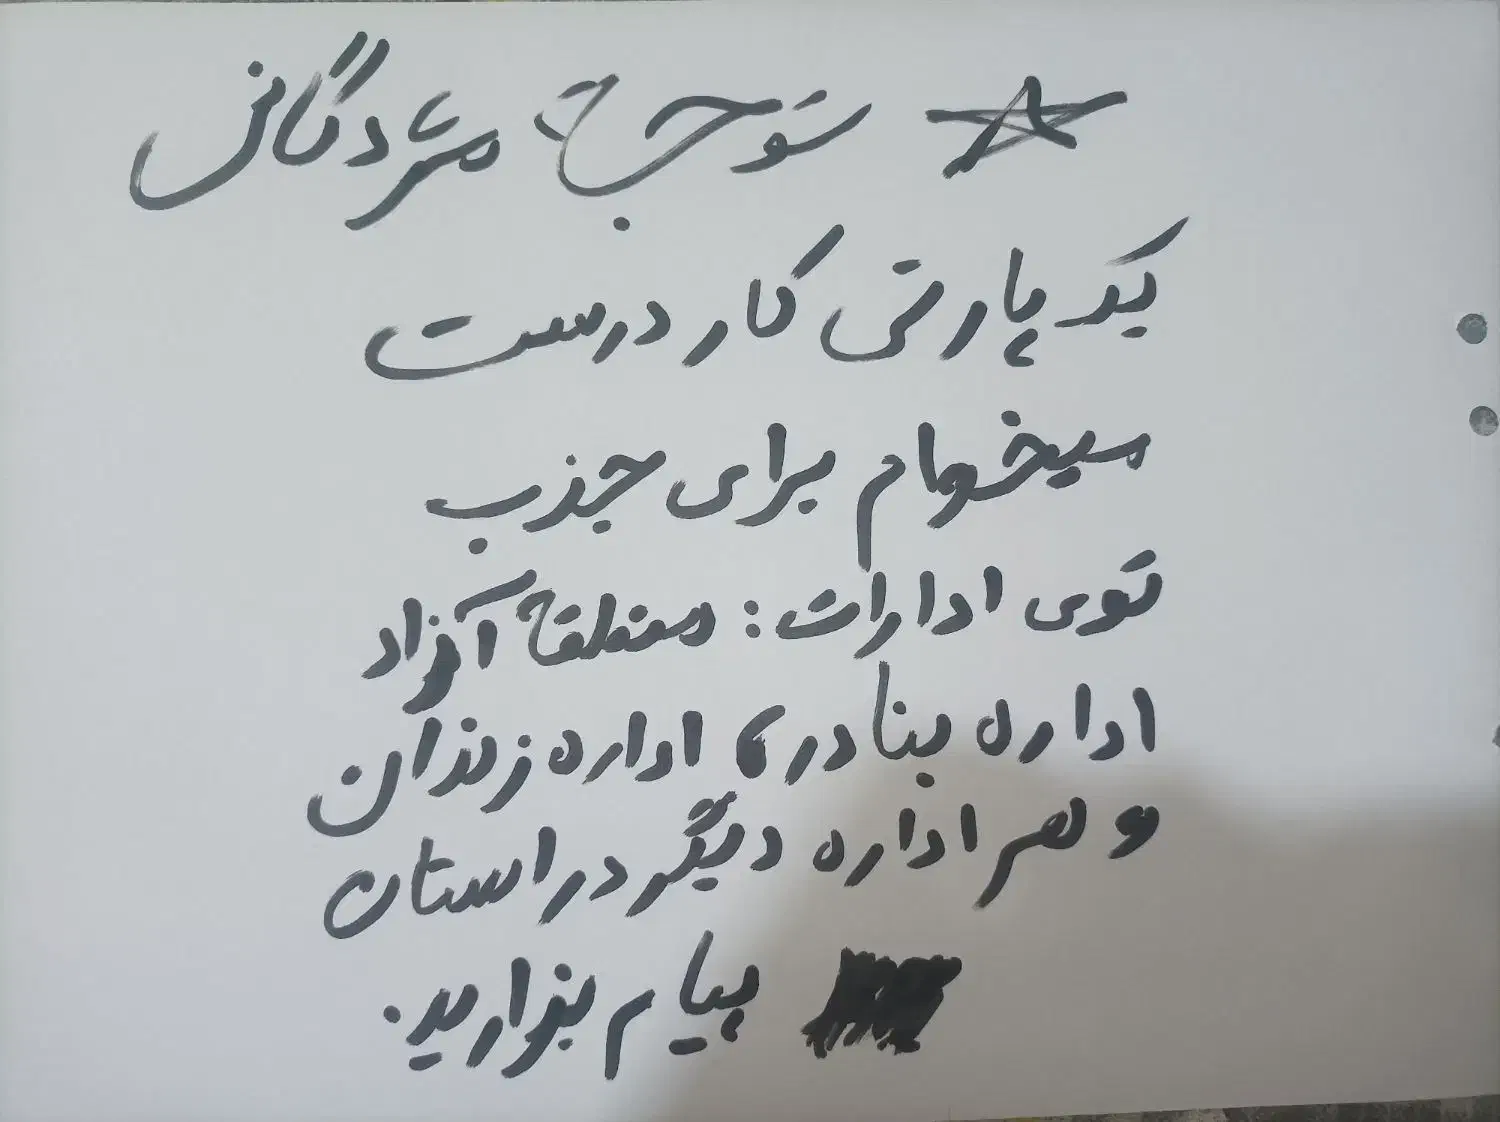 توجه مژدگانی
یک پارتی کار درست
میخوام برای جذب
توی ادارات: منطقه آزاد
اداره بنادر، اداره زندان
و هر اداره دیگر در استان
پیام بزارید.